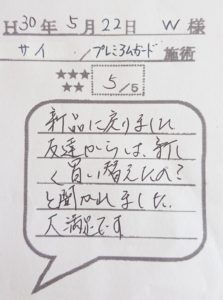 H30年5月22日 W様
サイ/プレミアムガード 施術
★★★
★★
5/5
新品に戻りました
友達からは、新し
く買い替えたの?
と聞かれました。
大満足です